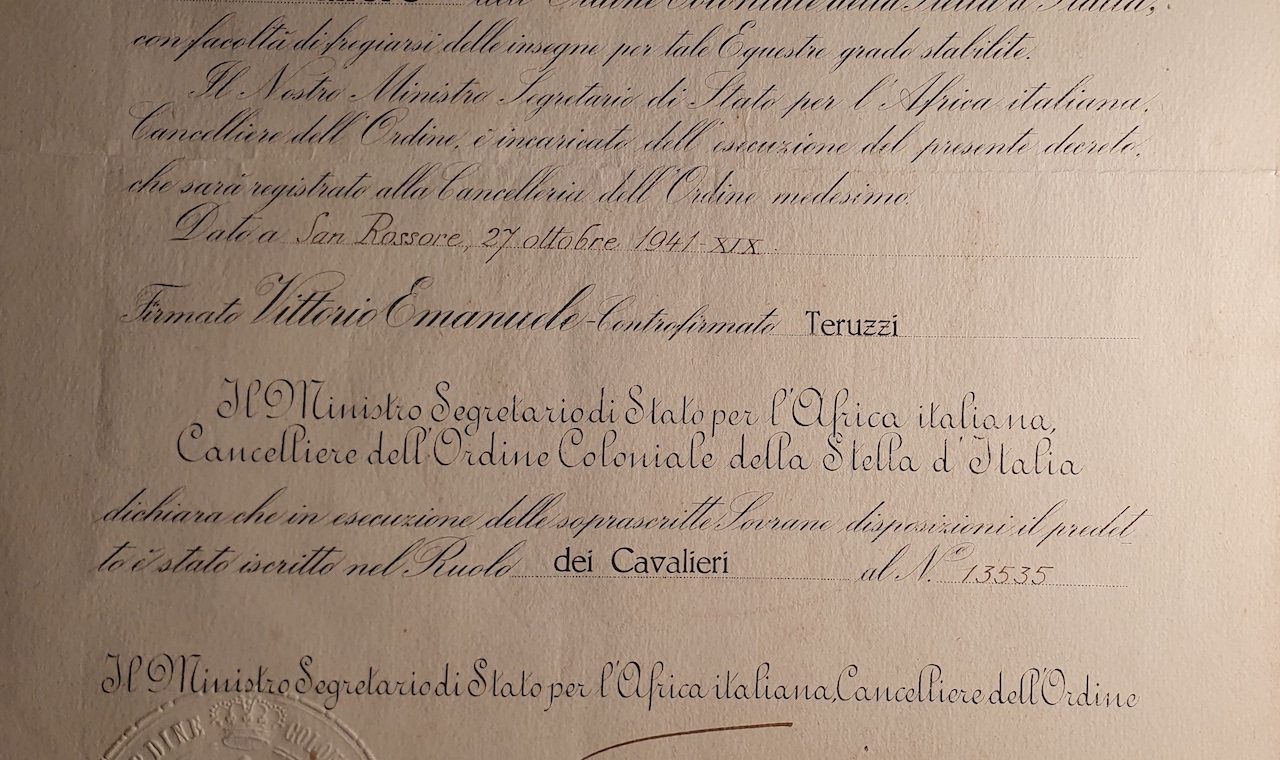 dell'Ordine Coloniale della Stella d'Italia,
con facoltà di fregiarsi delle insegne per tale Equestre grado stabilite.
Il Nostro Ministro Segretario di Stato per l'Africa italiana,
Cancelliere dell'Ordine, è incaricato dell'esecuzione del presente decreto,
che sarà registrato alla Cancelleria dell'Ordine medesimo.
Dato a San Rossore, 27 ottobre 1941-XIX.
Firmato Vittorio Emanuele - Controfirmato Teruzzi
Il Ministro Segretario di Stato per l'Africa italiana,
Cancelliere dell'Ordine Coloniale della Stella d'Italia
dichiara che in esecuzione delle soprascritte Sovrane disposizioni il predet
to è stato iscritto nel Ruolo dei Cavalieri al N.º 13535
Il Ministro Segretario di Stato per l'Africa italiana, Cancelliere dell'Ordine
ORDINE COLO